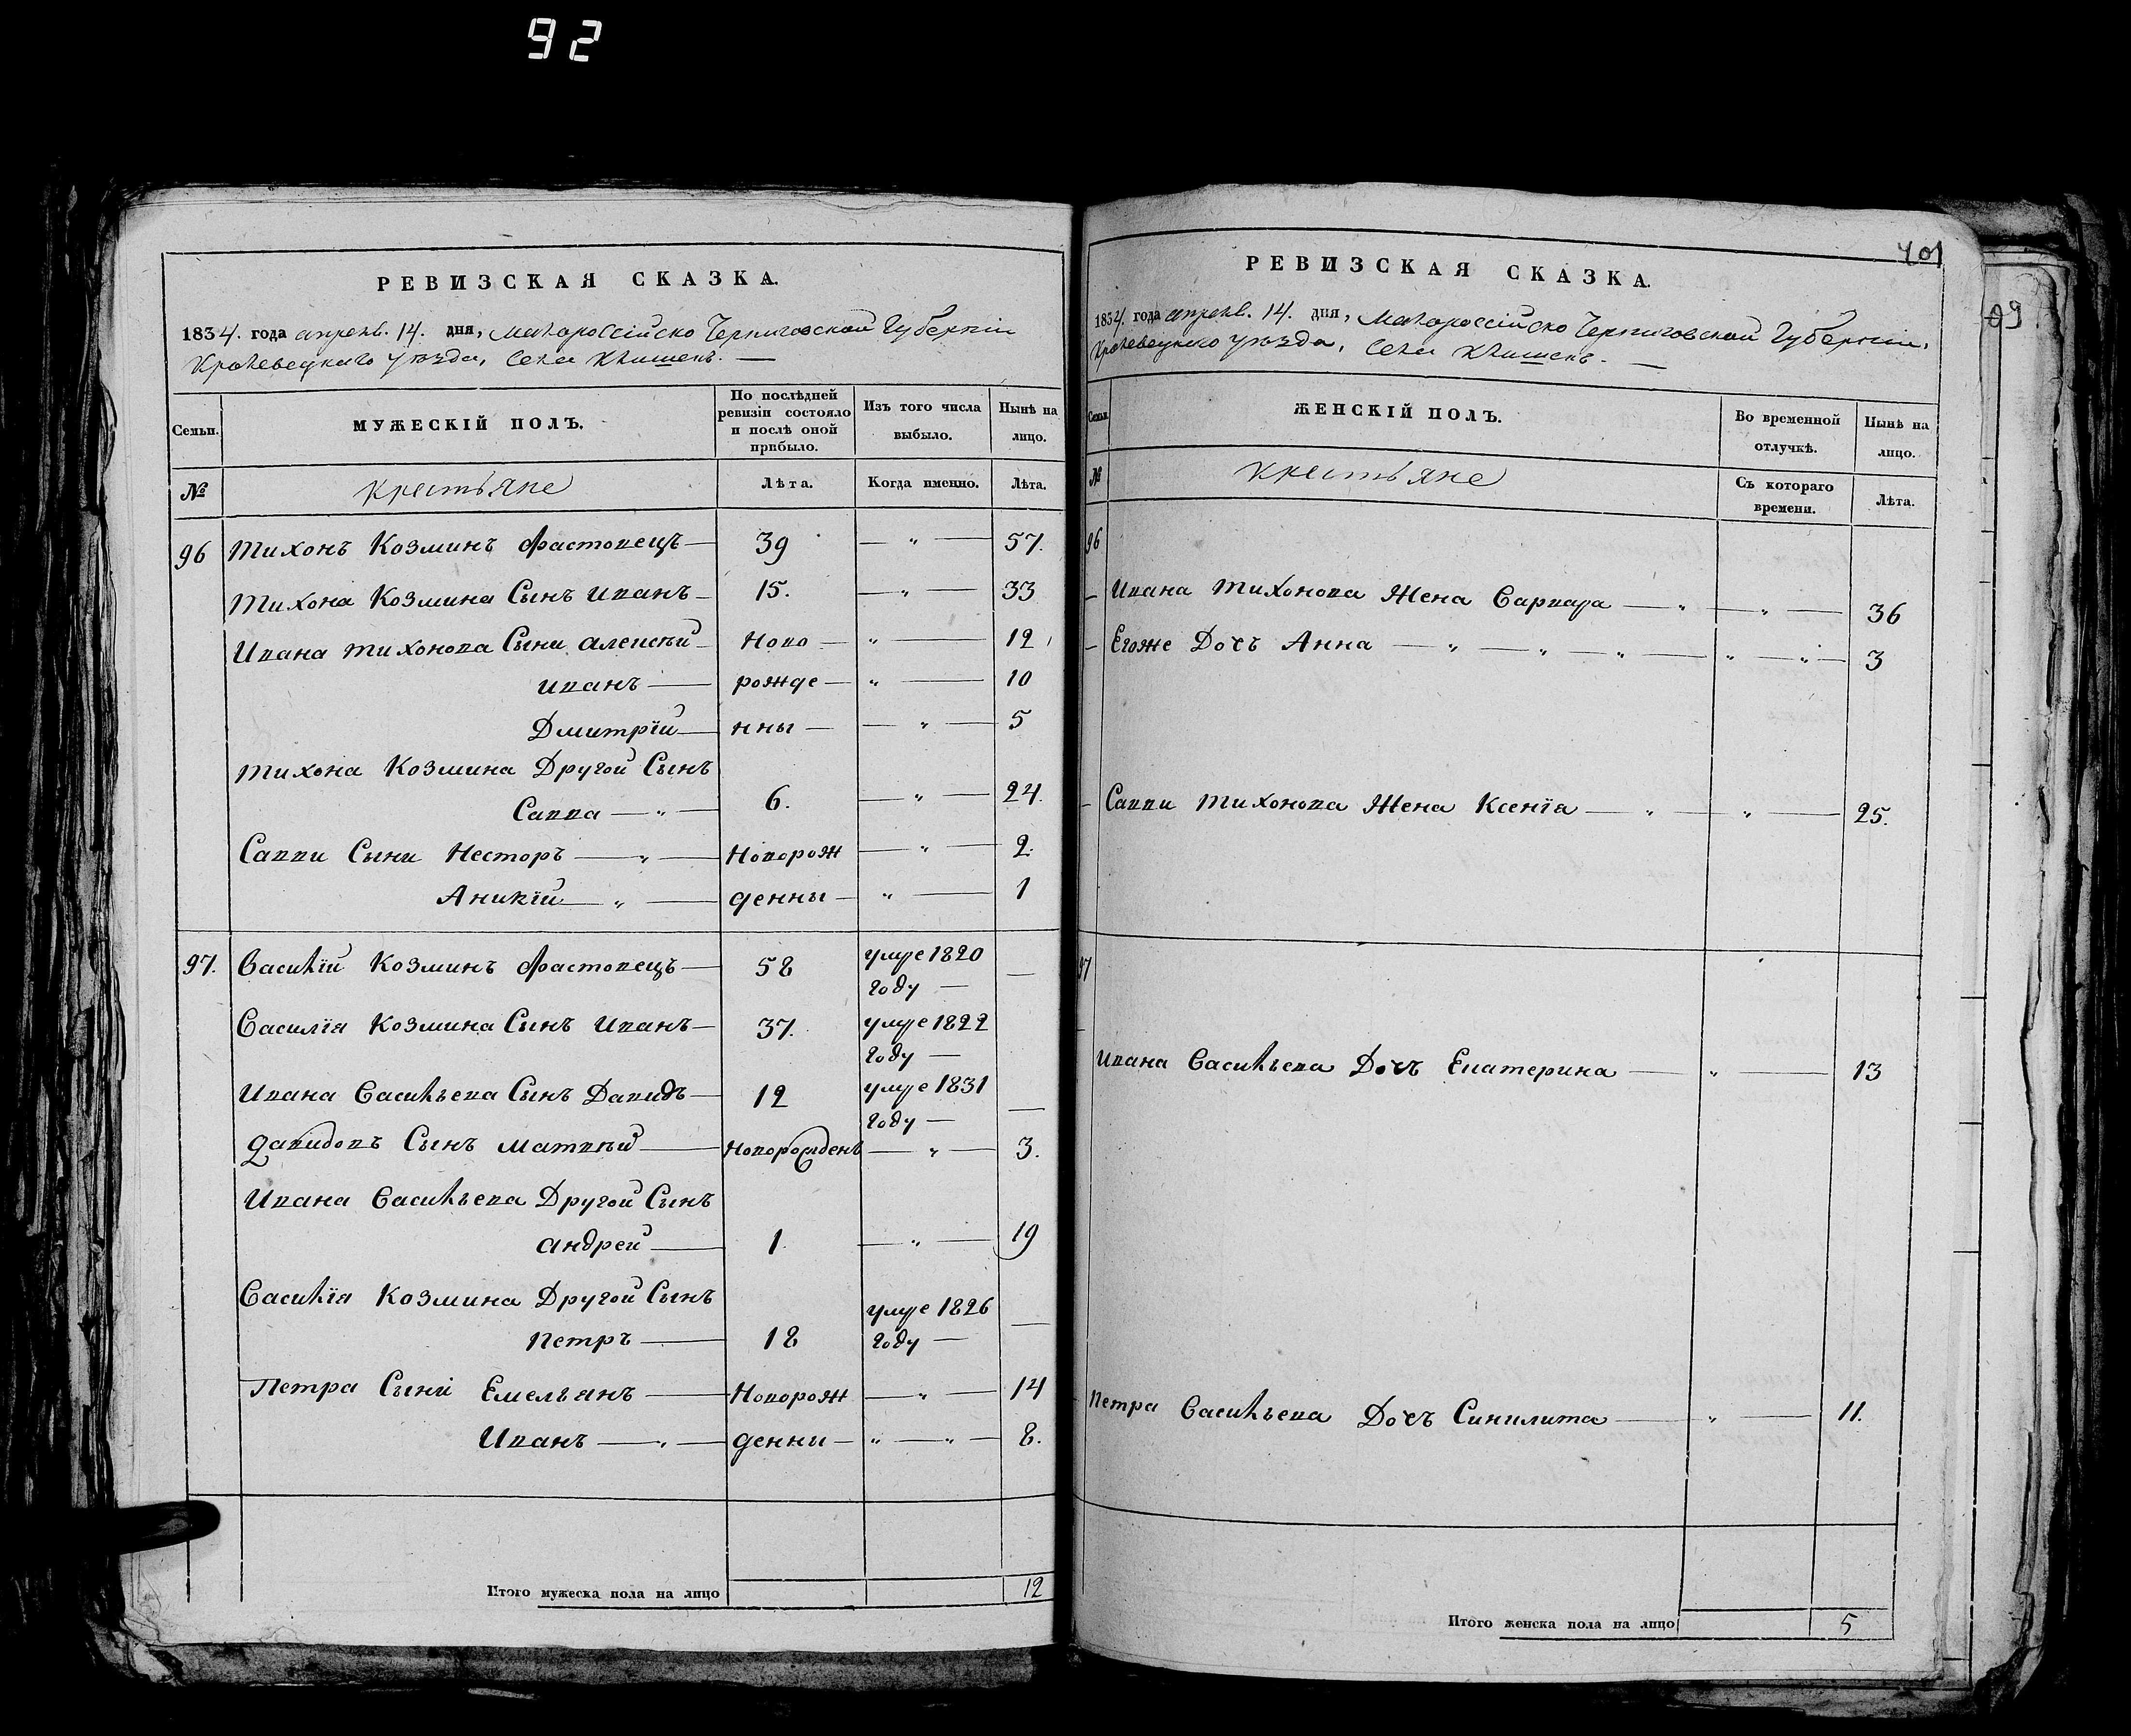 92
РЕВИЗСКАЯ СКАЗКА.
1834. года апреля. 14. дня, Малороссійско Черниговской Губерніи
Кролевецкаго уезда, Села Клишекъ. —
Семьи.
МУЖЕСКІЙ ПОЛЪ.
По послѣдней ревизіи состояло и послѣ оной прибыло.
Изъ того числа выбыло.
Нынѣ на лицо.
№ крестьяне Лѣта. Когда именно. Лѣта.
96 Тихонъ Козминъ Фастовецъ — 39 — „ — 57.
Тихона Козмина Сынъ Иванъ — 15. — „ — 33
Ивана Тихонова Сыни Алексѣй — Ново — „ — 12
Иванъ — рожде — „ — 10
Дмитрїй — нны — „ — 5
Тихона Козмина Другой Сынъ
Савва — „ — 6. — „ — 24.
Савви Сыни Несторъ — „ — Новорож — „ — 2.
Аникїй — „ — денны — „ — 1
97. Василїй Козминъ Фастовецъ — 58 умре 1820 году — —
Василїя Козмина Сынъ Иванъ — 37. умре 1822 году —
Ивана Васильева Сынъ Давидъ — 12 умре 1831 году — —
Давидовъ Сынъ Матвѣй — Новорожденъ — „ — 3.
Ивана Васильева Другой Сынъ
Андрей — 1. — „ — 19
Василїя Козмина Другой Сынъ
Петръ — 18 умре 1826 году — —
Петра Сыни Емельянъ — Новорож — „ — 14
Иванъ — „ — денны — „ — „ — 8.
Итого мужеска пола на лицо 12
401
РЕВИЗСКАЯ СКАЗКА.
1834. года апреля. 14. дня, Малороссійско Черниговской Губерніи,
Кролевецкаго уезда, Села Клишекъ. —
Семьи.
ЖЕНСКІЙ ПОЛЪ.
Во временной отлучкѣ.
Нынѣ на лицо.
№ крестьяне Съ котораго времени. Лѣта.
96
— Ивана Тихонова Жена Варвара — „ — „ — 36
— Егоже Дочъ Анна — „ — „ — „ — „ — „ — 3
— Савви Тихонова Жена Ксенїя — „ — „ — 25.
97
Ивана Васильева Дочъ Екатерина — „ — 13
Петра Васильева Дочъ Синклита — „ — 11.
Итого женска пола на лицо 5
09